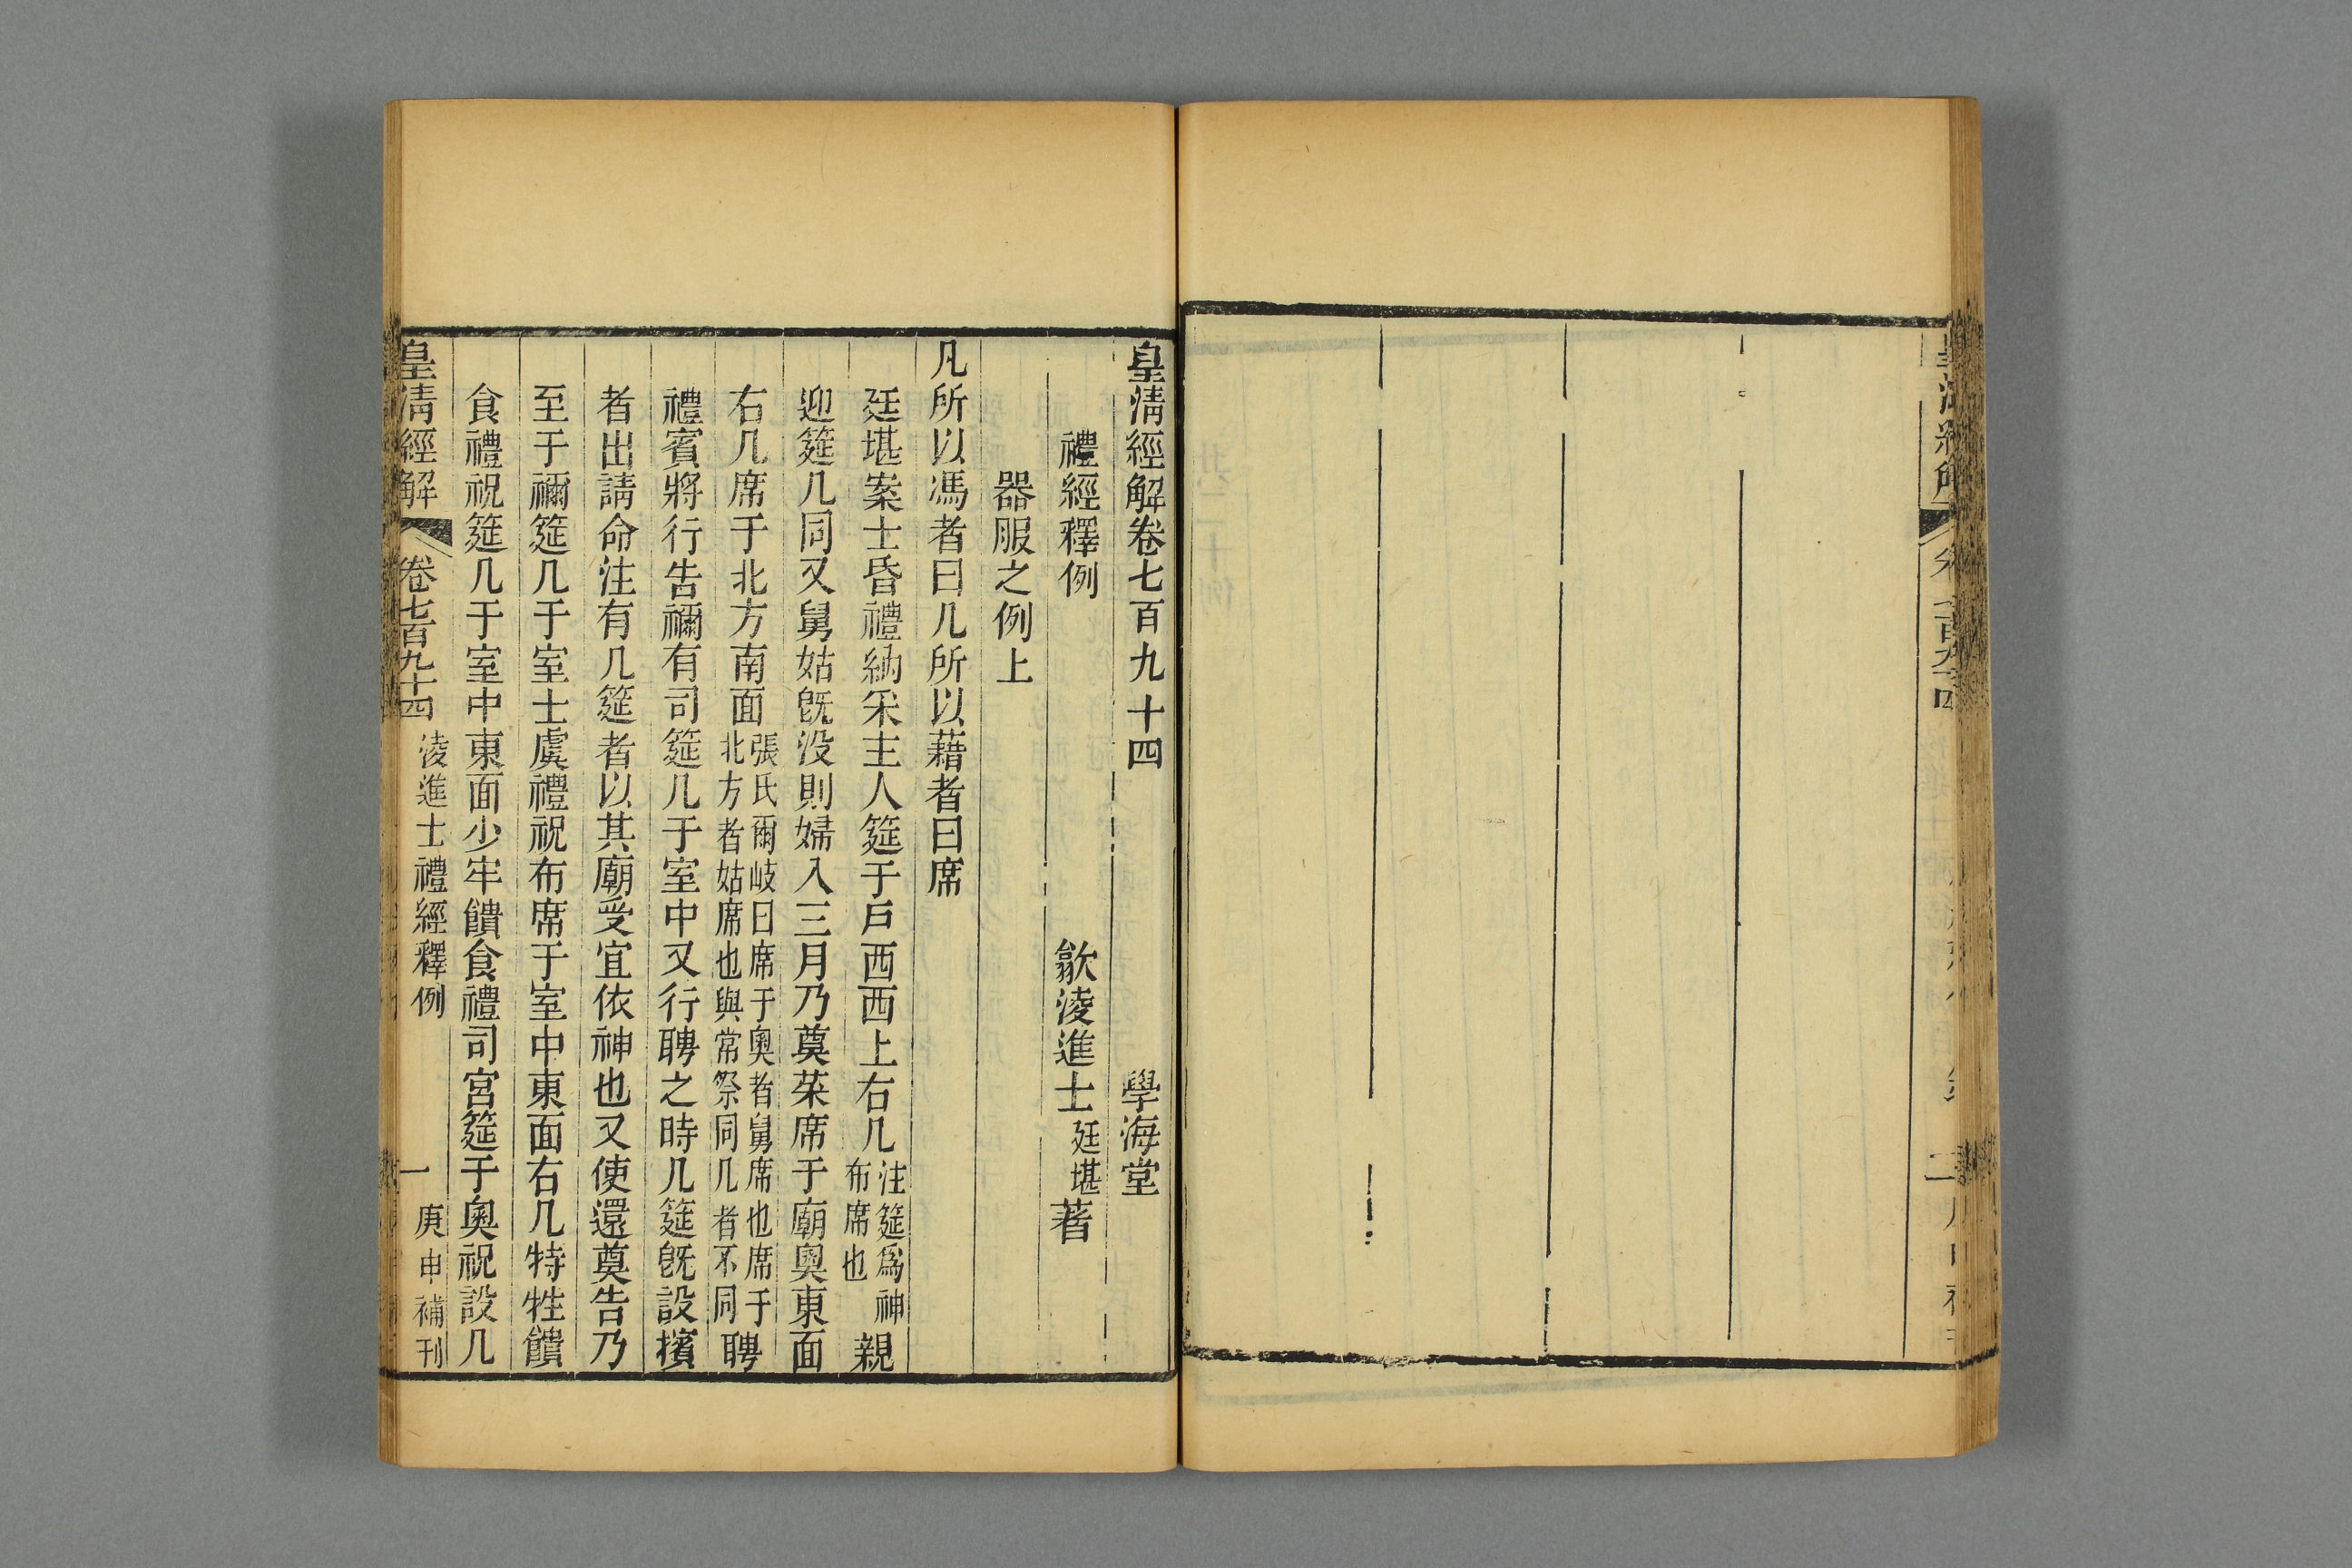 皇清經解卷七百九十四 學海堂
禮經釋例 歙淩進士廷堪著
器服之例上
凡所以馮者曰几所以藉者曰席
廷堪案士昏禮納采主人筵于戶西西上右几注筵爲神布席也親
迎筵几同又舅姑旣没則婦入三月乃奠菜席于廟奧東面
右几席于北方南面張氏爾岐曰席于奧者舅席也席于北方者姑席也與常祭同几者不同聘
禮賓將行告禰有司筵几于室中又行聘之時几筵旣設擯
者出請命注有几筵者以其廟受宜依神也又使還奠告乃
至于禰筵几于室士虞禮祝布席于室中東面右几特牲饋
食禮祝筵几于室中東面少牢饋食禮司宮筵于奧祝設几
皇清經解 卷七百九十四 淩進士禮經釋例 一 庚申補刊